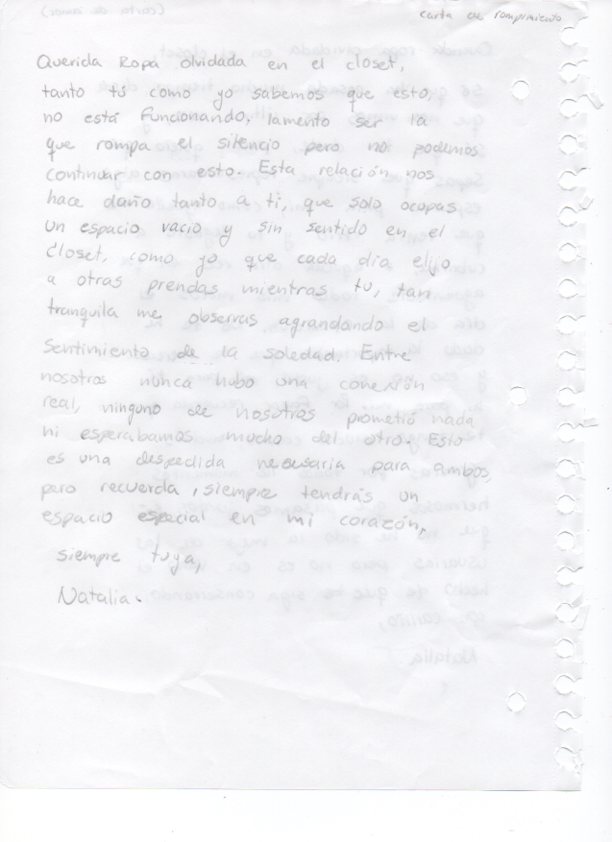 carta de rompimiento
Querida Ropa olvidada en el closet,
tanto tú como yo sabemos que esto,
no está funcionando, lamento ser la
que rompa el silencio pero no podemos
continuar con esto. Esta relación nos
hace daño tanto a ti, que solo ocupas
un espacio vacio y sin sentido en el
closet, como yo que cada día elijo
a otras prendas mientras tu, tan
tranquila me observas agrandando el
sentimiento de la soledad. Entre
nosotras nunca hubo una conexión
real, ninguno de nosotros prometió nada
ni esperabamos mucho del otro. Esto
es una despedida necesaria para ambos,
pero recuerda, siempre tendrás un
espacio especial en mi corazón,
siempre tuya,
Natalia.